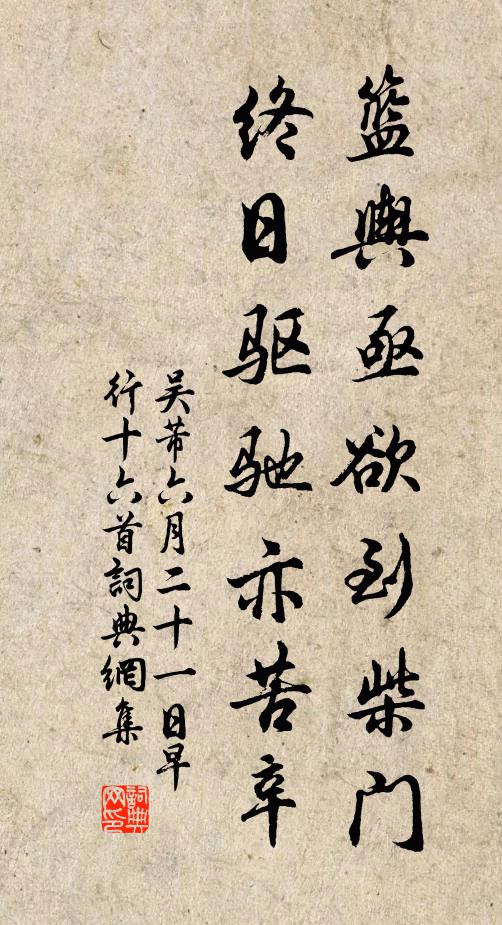 籃輿亟欲到柴門
终日驱驰亦苦辛
吴芾六月二十一日早
行十六首詞典網集
詞典
网印